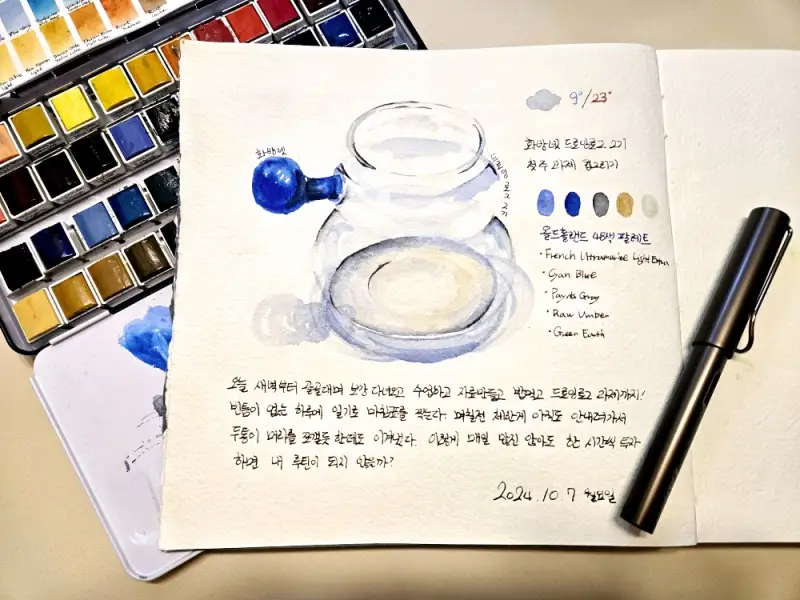 9°/23°
화방넷 드로잉로그 2기
첫주 과제 컵그리기
화방넷
드로잉로그 2기
올드홀랜드 48색 팔레트
· French Ultramarine Light Extra
· Cyan Blue
· Payn's Gray
· Raw Umber
· Green Earth
오늘 새벽부터 골골대며 보강 다녀오고 수업하고 자료만들고 밥먹고 드로잉로그 과제까지!
빈틈이 없는 하루에 일기로 마침표를 찍는다. 며칠전 체한게 아직도 안내려가서
두통이 머리를 쪼갤듯 한데도 이겨냈다. 이렇게 매일 멀진 않아도 한 시간씩 투자
하면 내 루틴이 되지 않을까?
2024. 10. 7 월요일